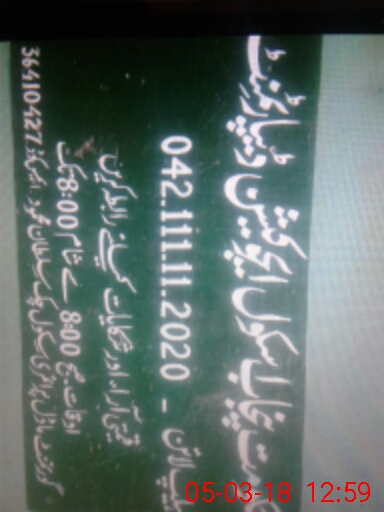 حکومت پنجاب سکول ایجوکیشن ڈیپارٹمنٹ
ہیلپ لائن - 042.111.11.2020
قیمتی آراء اور شکایات کیلئے رابطہ کریں
اوقات صبح 8:00 سے شام 8:00 تک
گورنمنٹ ماڈل پرائمری سکول سلطان محمود 36410427
05-03-18 12:59